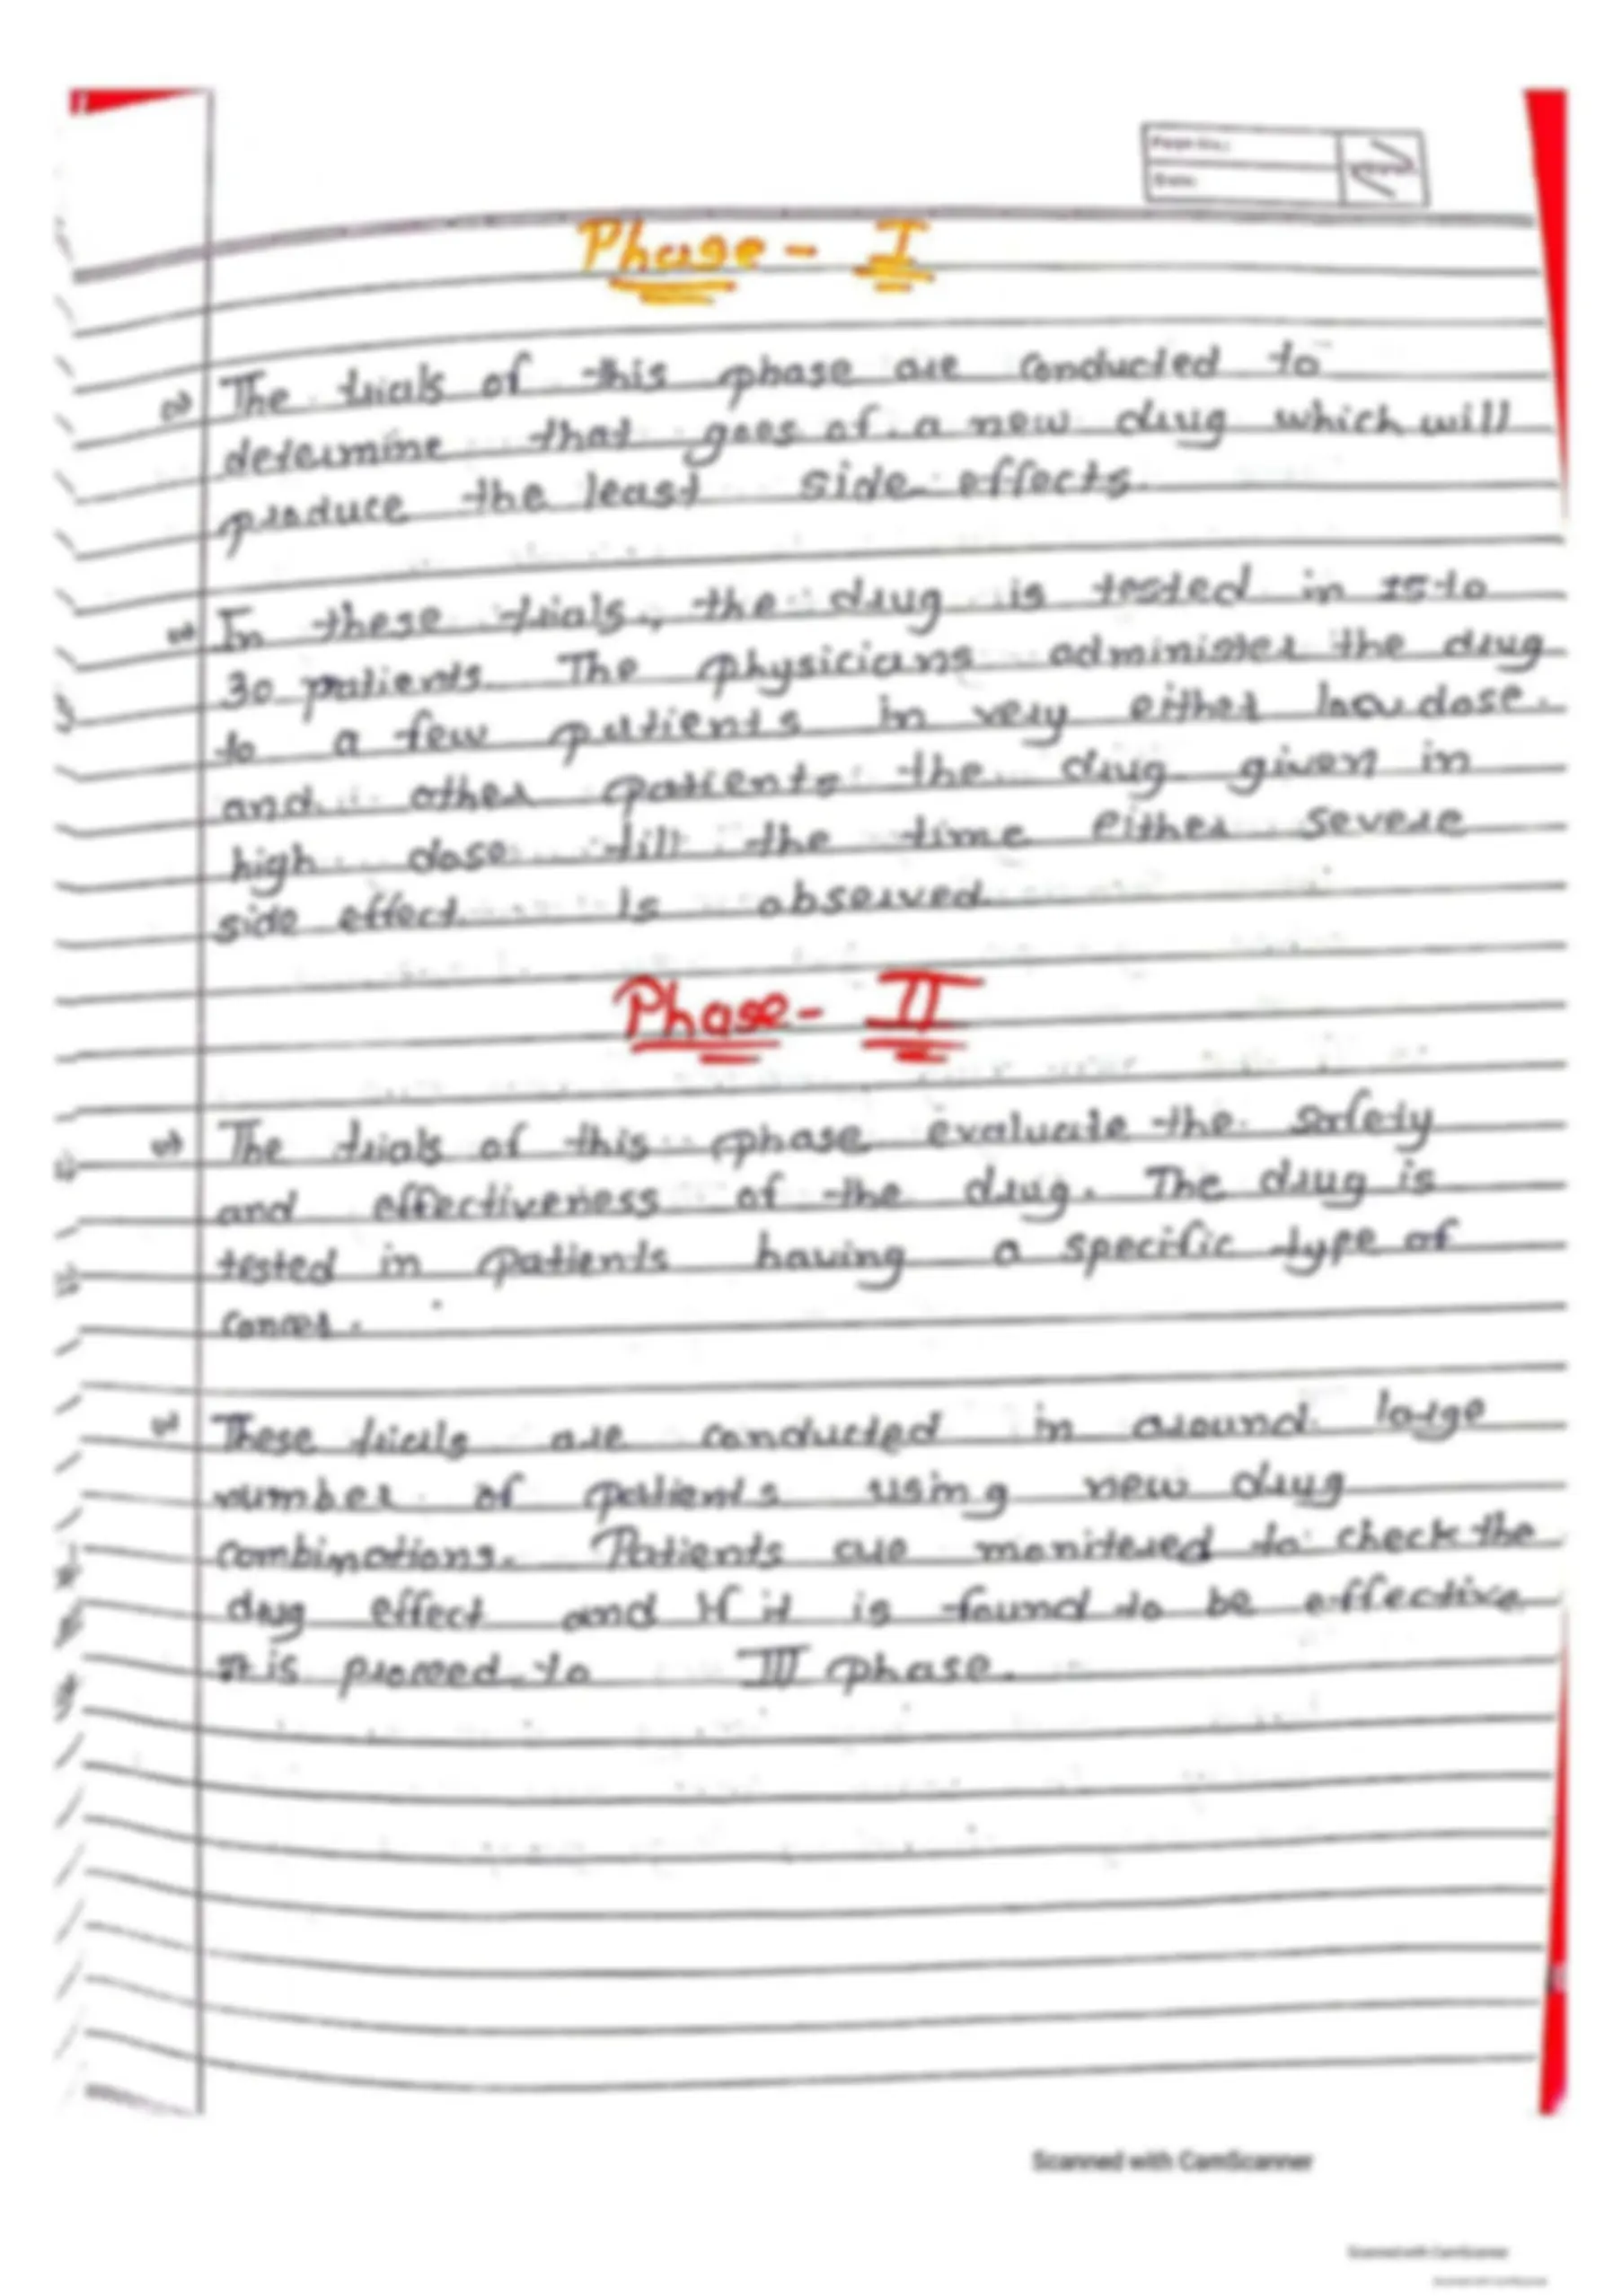 Page No.:
Date:
Phase - I
The trials of this phase are conducted to
determine that goes of a new drug which will
produce the least side effects.
In these trials, the drug is tested in 15 to
30 patients. The physicians administer the drug
to a few patients in very either low dose.
and other patients the drug given in
high dose till the time either severe
side effect is observed.
Phase - II
The trials of this phase evaluate the safety
and effectiveness of the drug. The drug is
tested in patients having a specific type of
cancer.
These trials are conducted in around large
number of patients using new drug
combinations. Patients are monitered to check the
drug effect and if it is found to be effective
it is to III phase.
Scanned with CamScanner
Scanned with CamScanner
Scanned with CamScanner